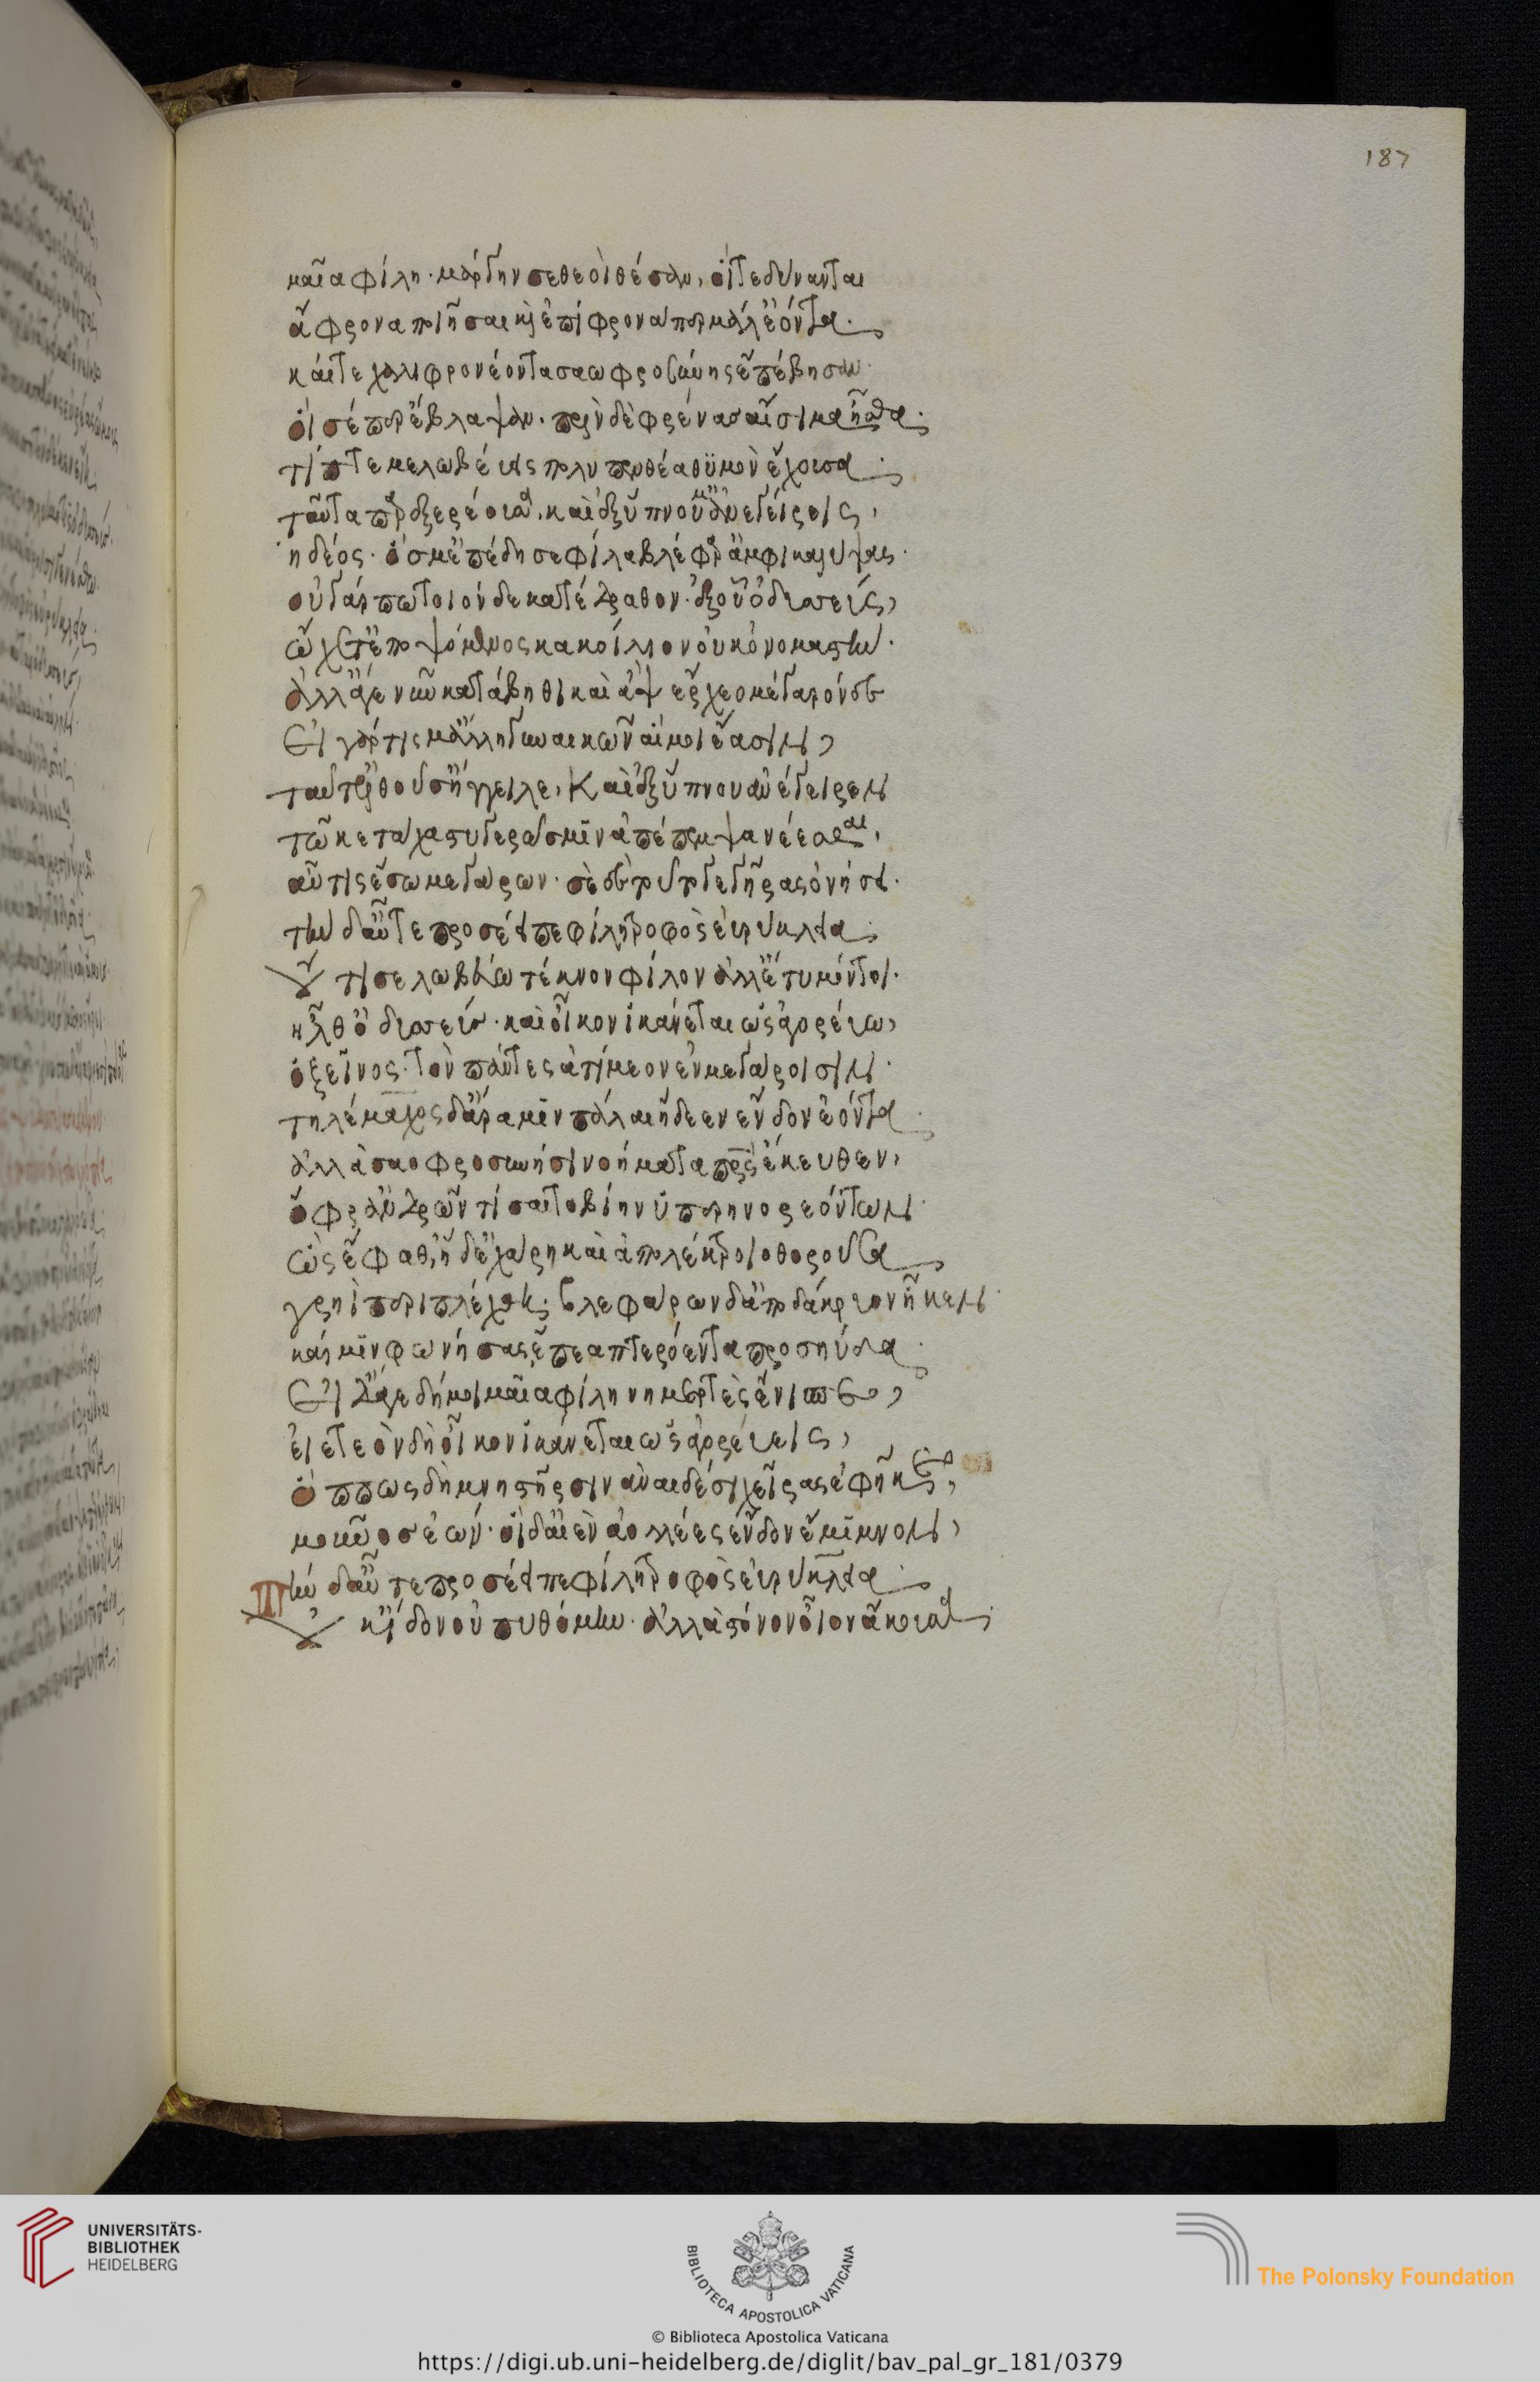 187
μαῖα φίλη· μάργην σε θεοὶ θέσαν, οἵ τε δύνανται
ἄφρονα ποιῆσαι καὶ ἐπίφρονά περ μάλ' ἐόντα·
καί τε χαλιφρονέοντα σαωφροσύνης ἐπέβησαν·
οἵ σέ περ ἔβλαψαν· πρὶν δὲ φρένας αἰσίμα ἦσθα·
τίπτέ με λωβεύεις πολυπενθέα θυμὸν ἔχουσαν·
ταῦτα παρὲξ ἐρέουσα· καὶ ἐξ ὕπνου μ' ἀνεγείρεις,
ἡδέος· ὅς μ' ἐπέδησε φίλα βλέφαρ' ἀμφικαλύψας·
οὐ γάρ πω τοιόνδε κατέδραθον· ἐξ οὗ ὀδυσσεὺς,
ᾤχετ' ἐποψόμενος κακοΐλιον οὐκ ὀνομαστήν·
ἀλλ' ἄγε νῦν κατάβηθι καὶ ἂψ ἔρχεο μέγαρόνδε
εἰ γάρ τίς μ' ἄλλη γυναικῶν αἵ μοι ἔασιν,
ταῦτ' ἐλθοῦσ' ἤγγειλε, καὶ ἐξ ὕπνου ἀνέγειρεν
τῷ κε τάχα στυγερῶς μιν ἀπέπεμψα νέεσθαι,
αὖτις ἔσω μεγάρων· σὲ δὲ τοῦτό γε γῆρας ὀνήσει·
τὴν δ' αὖτε προσέειπε φίλη τροφὸς εὐρύκλεια·
οὔ τί σε λωβεύω τέκνον φίλον ἀλλ' ἔτυμόν τοι·
ἦλθ' ὀδυσσεὺς· καὶ οἶκον ἱκάνεται ὡς ἀγορεύω,
ὁ ξεῖνος· τὸν πάντες ἀτίμεον ἐν μεγάροισιν·
τηλέμαχος δ' ἄρα μιν πάλαι ᾔδεεν ἔνδον ἐόντα·
ἀλλὰ σαοφροσύνῃσι νοήματα πατρὸς ἔκευθεν,
ὄφρ' ἀνδρῶν τίσαιτο βίην ὑπερηνορεόντων·
ὣς ἔφαθ', ἡ δ' ἐχάρη καὶ ἀπὸ λέκτροιο θοροῦσα
γρηῒ περιπλέχθη· βλεφάρων δ' ἀπὸ δάκρυον ἧκεν·
καί μιν φωνήσασ' ἔπεα πτερόεντα προσηύδα·
εἰ δ' ἄγε δή μοι μαῖα φίλη νημερτὲς ἔνισπε,
εἰ ἐτεὸν δὴ οἶκον ἱκάνεται ὡς ἀγορεύεις,
ὅππως δὴ μνηστῆρσιν ἀναιδέσι χεῖρας ἐφῆκε,
μοῦνος ἐών· οἱ δ' αἰὲν ἀολλέες ἔνδον ἔμιμνον,
τὴν δ' αὖτε προσέειπε φίλη τροφὸς εὐρύκλεια·
οὐκ ἴδον οὐ πυθόμην· ἀλλὰ στόνον οἶον ἄκουσα·
UNIVERSITÄTS-
BIBLIOTHEK
HEIDELBERG
BIBLIOTECA APOSTOLICA VATICANA
The Polonsky Foundation
© Biblioteca Apostolica Vaticana
https://digi.ub.uni-heidelberg.de/diglit/bav_pal_gr_181/0379